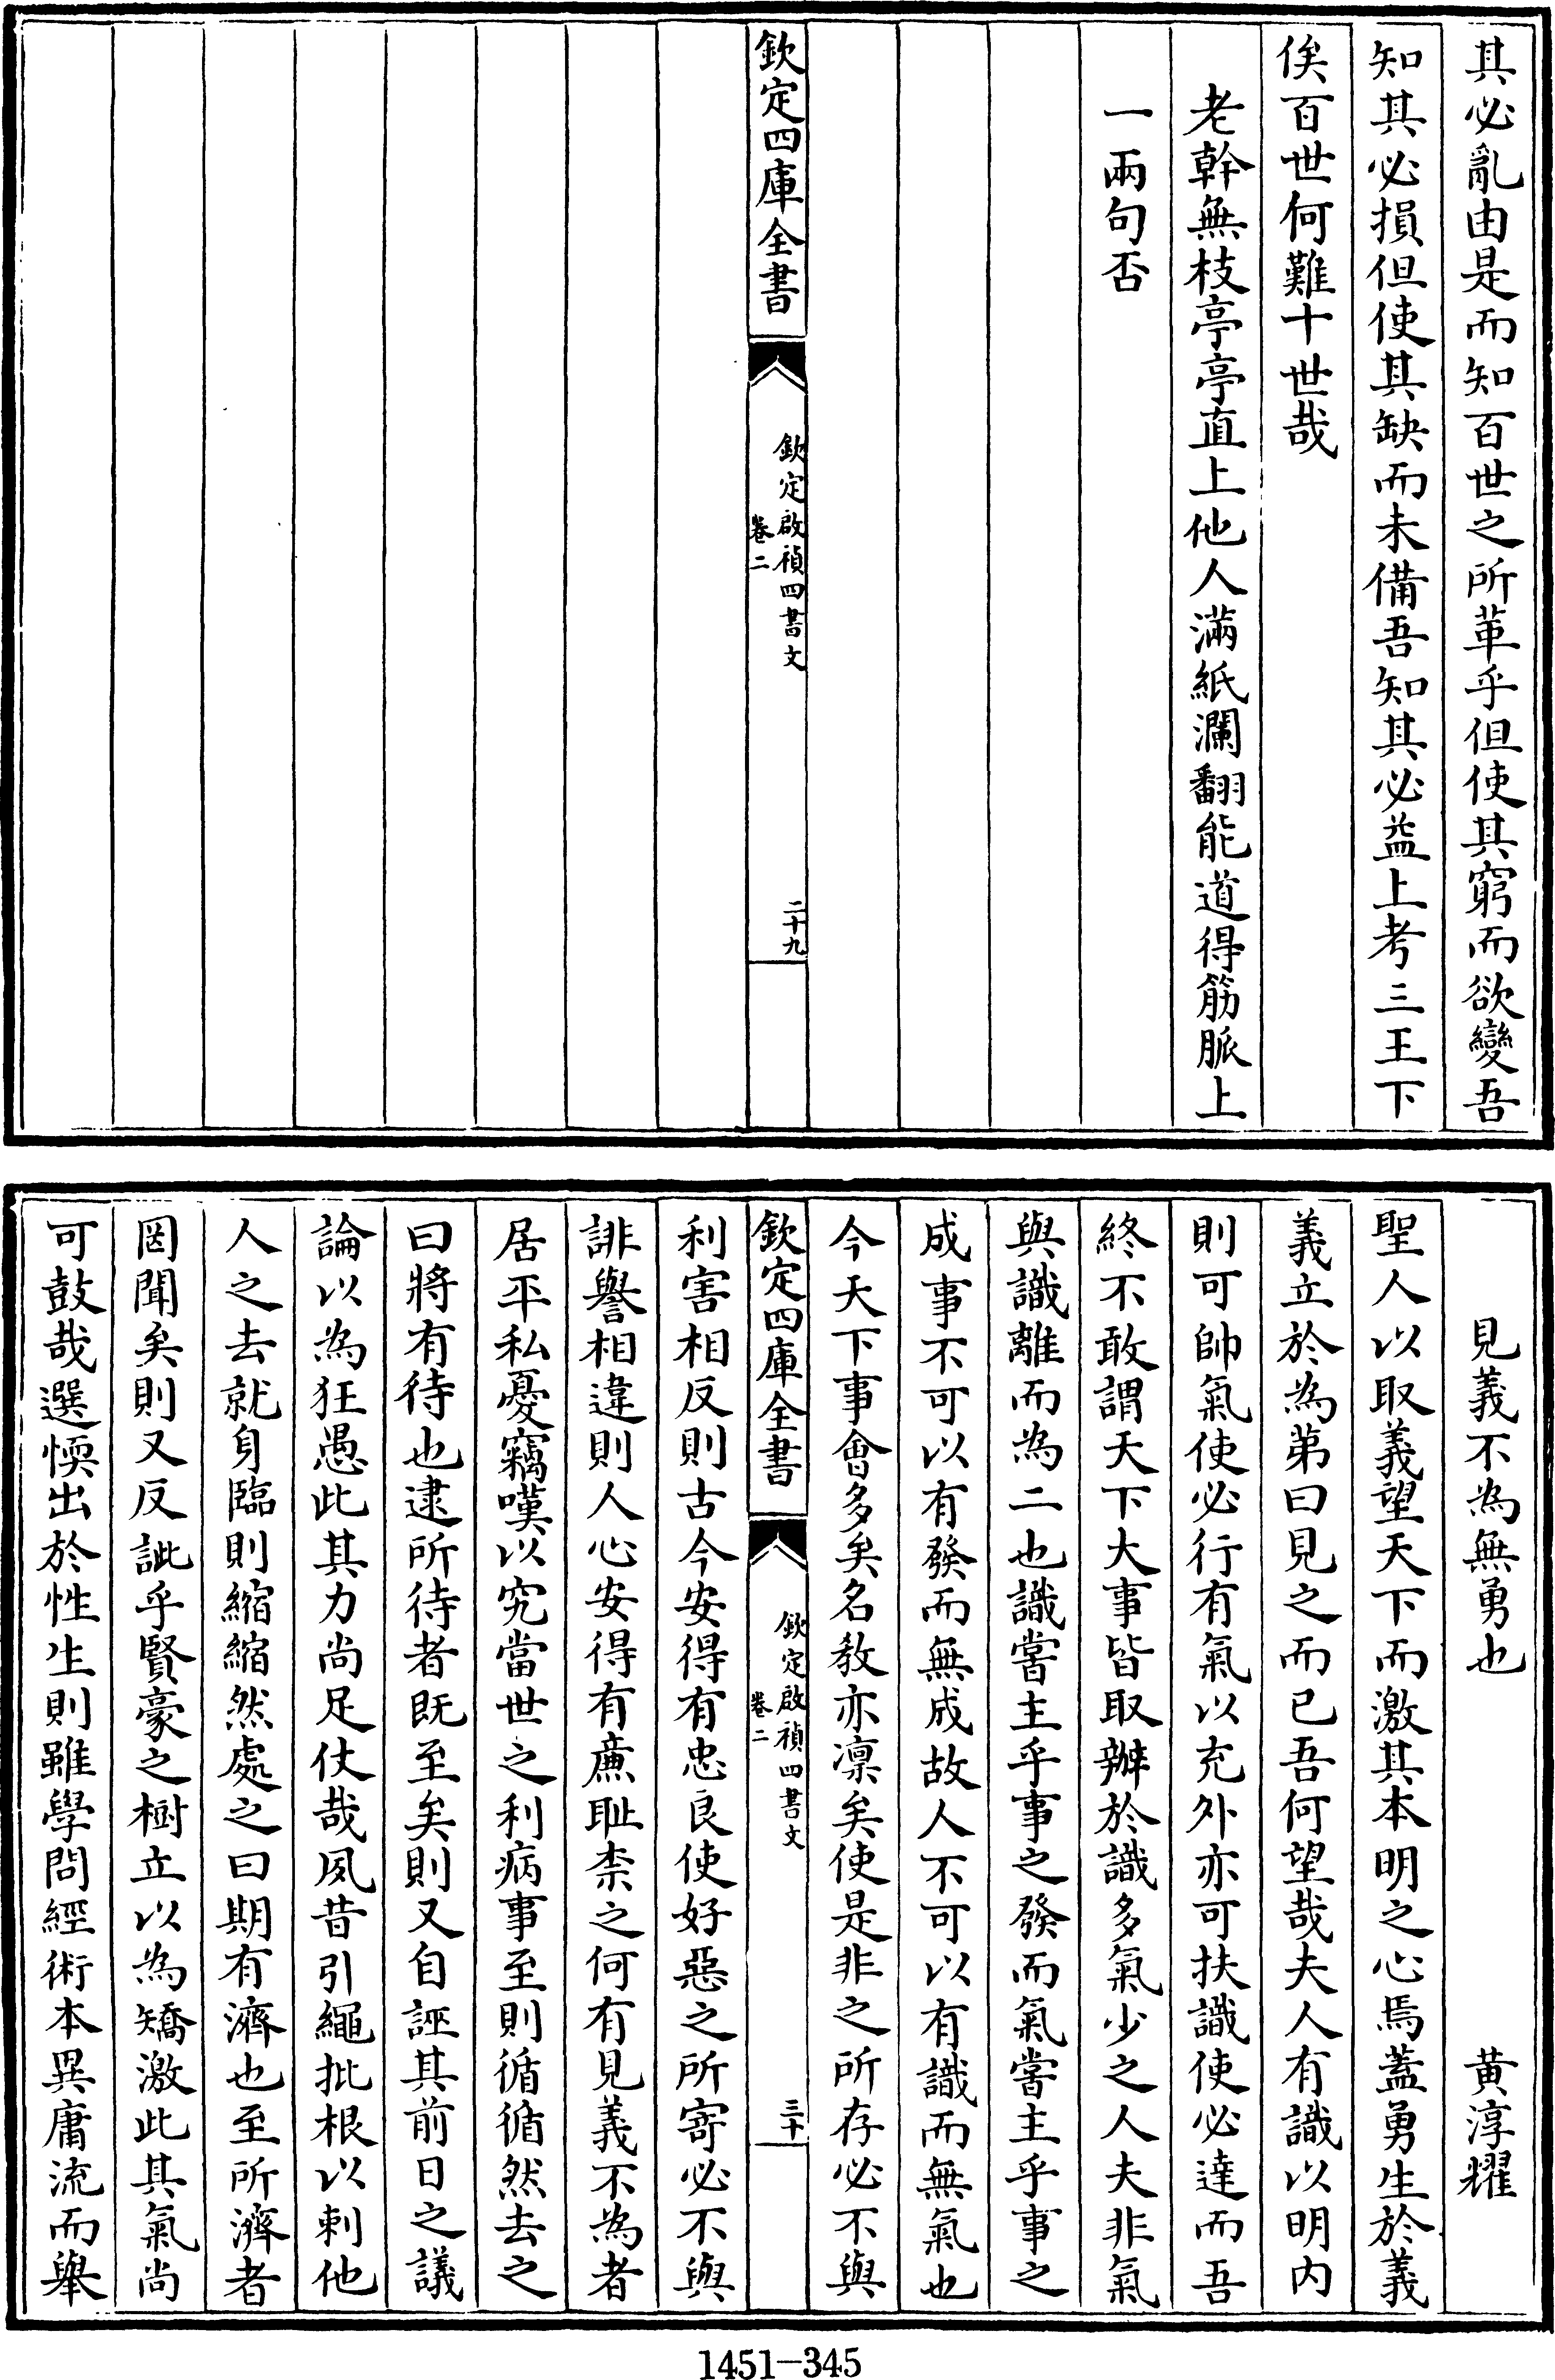 其必亂由是而知百世之所革乎但使其窮而欲變吾
知其必損但使其缺而未備吾知其必益上考三王下
俟百世何難十世哉
老幹無枝亭亭直上他人滿紙瀾翻能道得筋脈上
一兩句否
欽定四庫全書
欽定啟禎四書文
卷二
二十九
見義不為無勇也 黄淳耀
聖人以取義望天下而激其本明之心焉蓋勇生於義
義立於為第曰見之而已吾何望哉夫人有識以明内
則可帥氣使必行有氣以充外亦可扶識使必達而吾
終不敢謂天下大事皆取辦於識多氣少之人夫非氣
與識離而為二也識嘗主乎事之發而氣嘗主乎事之
成事不可以有發而無成故人不可以有識而無氣也
今天下事會多矣名教亦凛矣使是非之所存必不與
欽定四庫全書
欽定啟禎四書文
卷二
三十
利害相反則古今安得有忠良使好惡之所寄必不與
誹譽相違則人心安得有亷耻柰之何有見義不為者
居平私憂竊嘆以究當世之利病事至則循循然去之
曰將有待也逮所待者既至矣則又自誣其前日之議
論以為狂愚此其力尚足仗哉夙昔引繩批根以刺他
人之去就身臨則縮縮然處之曰期有濟也至所濟者
罔聞矣則又反訿乎賢豪之樹立以為矯激此其氣尚
可鼓哉選愞出於性生則雖學問經術本異庸流而舉
1451-345